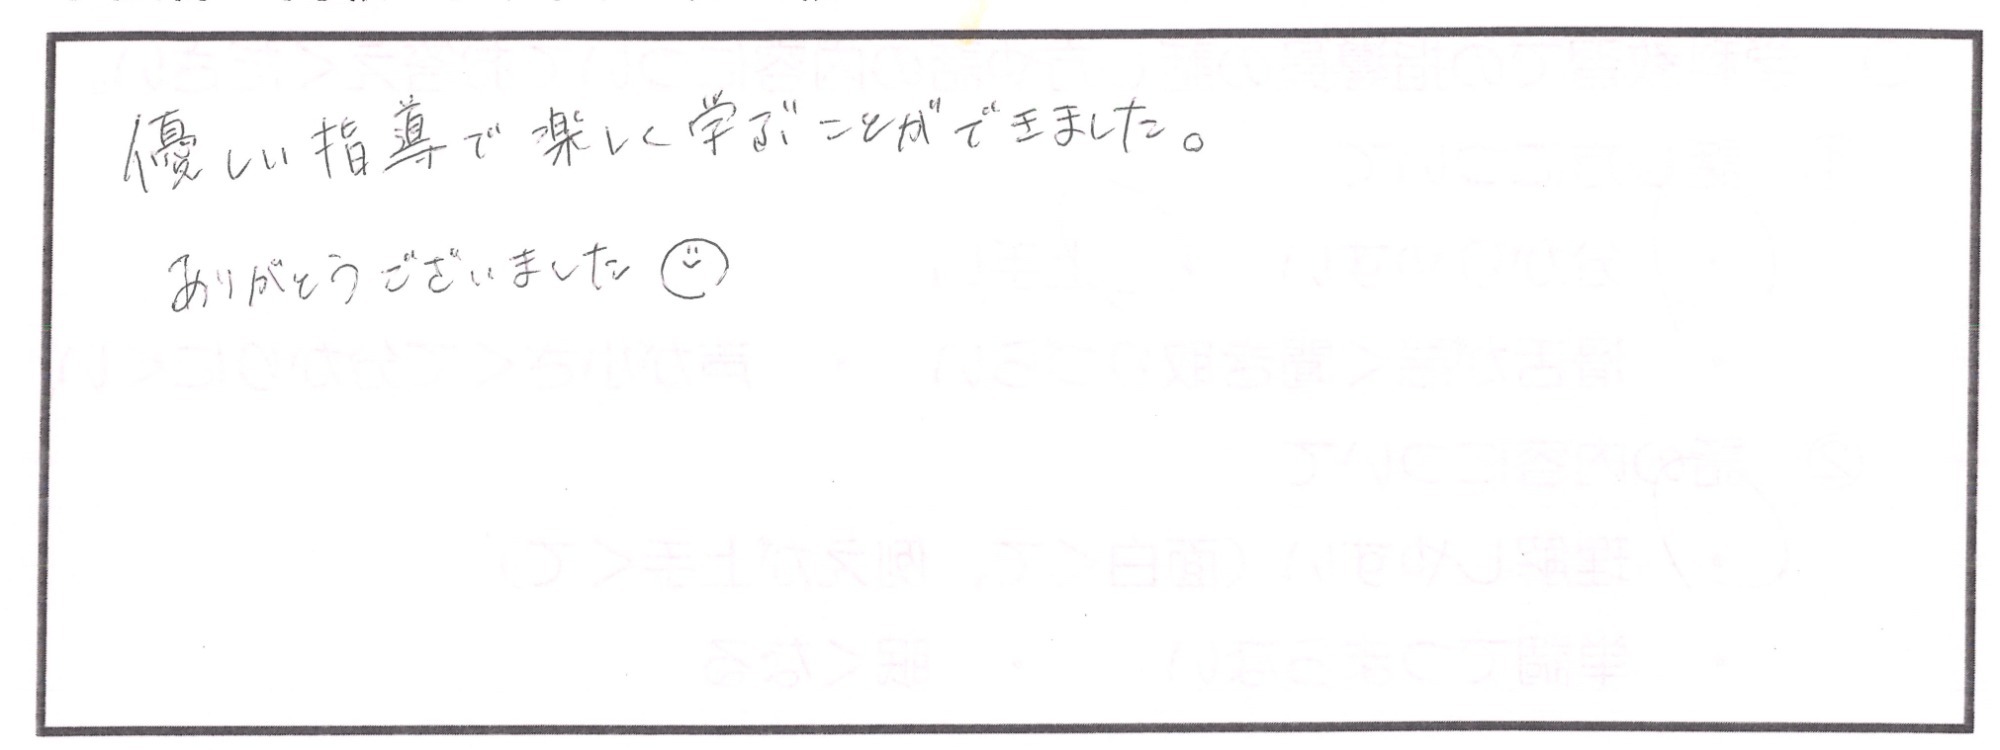 優しい指導で楽しく学ぶことができました。
ありがとうございました